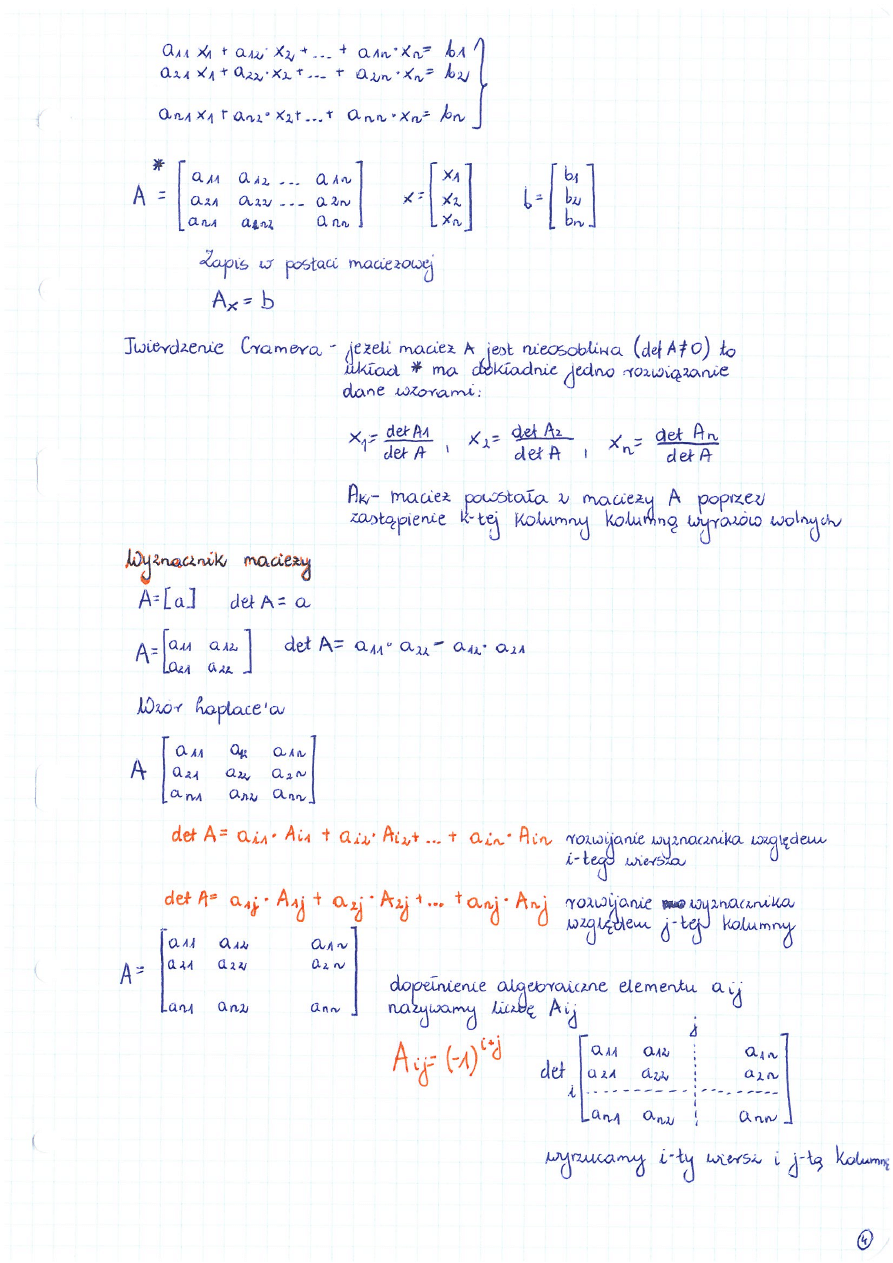 a11 x1 + a12· x2 + ... + a1n · xn = b1
a21 x1 + a22·x2 + ... + a2n · xn = b2
an1 x1 + an2· x2 + ... + ann · xn = bn
*
A = [ a11 a12 ... a1n
a21 a22 ... a2n
an1 an2 ann ]
x = [ x1
x2
xn ]
b = [ b1
b2
bn ]
Zapis w postaci macieżowej
Ax = b
Twierdzenie Cramera - jeżeli macież A jest nieosobliwa (det A≠0) to
układ * ma dokładnie jedno rozwiązanie
dane wzorami:
x1 = det A1 / det A , x2 = det A2 / det A , xn = det An / det A
Ak - macież powstała z macieży A poprzez
zastąpienie k-tej kolumny kolumną wyrazów wolnych
Wyznacznik macieży
A=[a] det A = a
A = [ a11 a12
a21 a22 ] det A = a11 · a22 - a12 · a21
Wzór Laplace'a
A [ a11 a12 a1n
a21 a22 a2n
an1 an2 ann ]
det A = ai1 · Ai1 + ai2 · Ai2 + ... + ain · Ain rozwijanie wyznacznika względem
i-tego wiersza
det A = a1j · A1j + a2j · A2j + ... + anj · Anj rozwijanie wyznacznika
względem j-tej kolumny
A = [ a11 a12 a1n
a21 a22 a2n
an1 an2 ann ]
dopełnienie algebraiczne elementu aij
nazywamy liczbę Aij
Aij = (-1)^i+j det [ a11 a12 a1n
a21 a22 a2n
an1 an2 ann ]
j
i
wyrzucamy i-ty wiersz i j-tą kolumnę
4